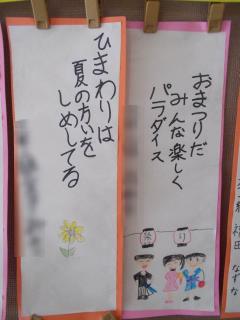 おまつりだ
みんな楽しく
パラダイス
祭り
ひまわりは
夏の方いを
しめしてる